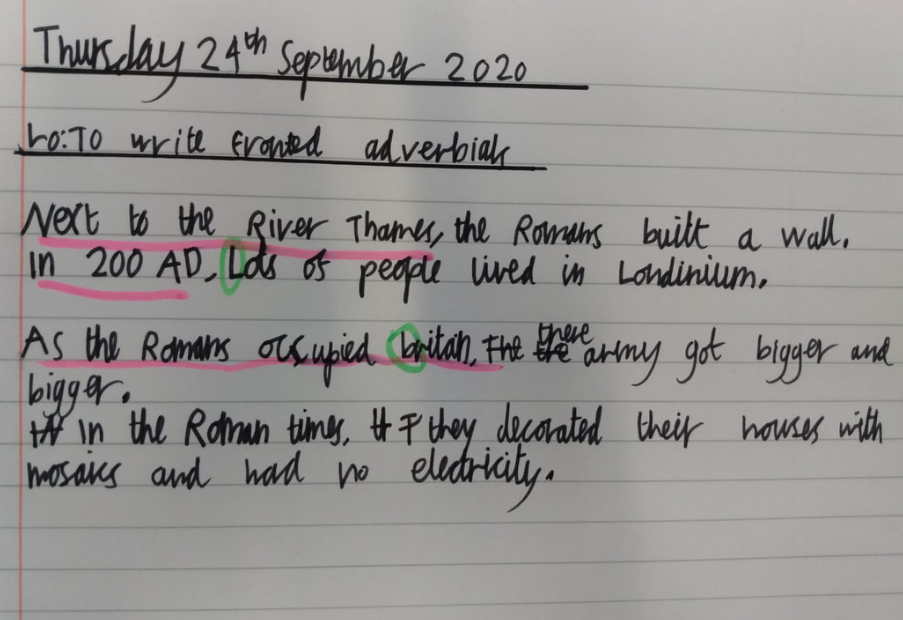 Thursday 24th September 2020
LO: To write fronted adverbials
Next to the River Thames, the Romans built a wall.
In 200 AD, Lots of people lived in Londinium.
As the Romans occupied britan, there army got bigger and
bigger.
In the Roman times, they decorated their houses with
mosaics and had no electricity.